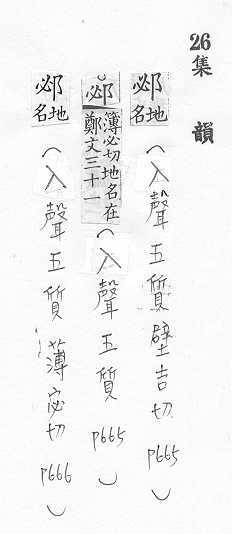 26
集韻
邲地名（入聲五質壁吉切 P665）
邲簿必切地名在鄭文三十一（入聲五質 P665）
邲地名（入聲五質薄宓切 P666）